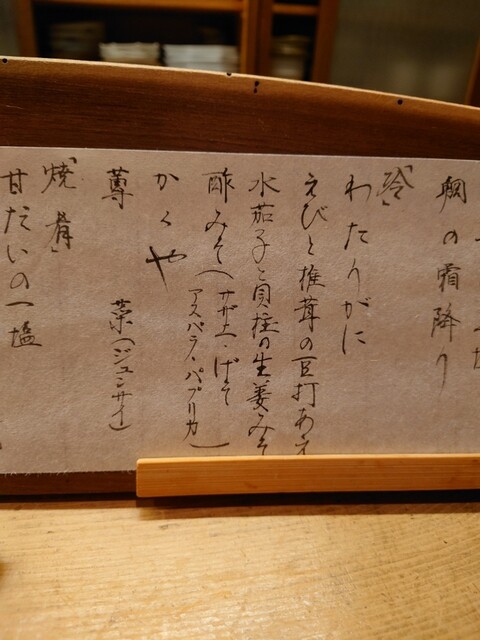 鯛の霜降り
「冷」
わたりがに
えびと椎茸の豆打あえ
水茄子と貝柱の生姜みそ
酢みそ(サザエ・げそ
アスパラ・パプリカ)
かくや
蓴菜(ジュンサイ)
「焼肴」
甘だいの一塩